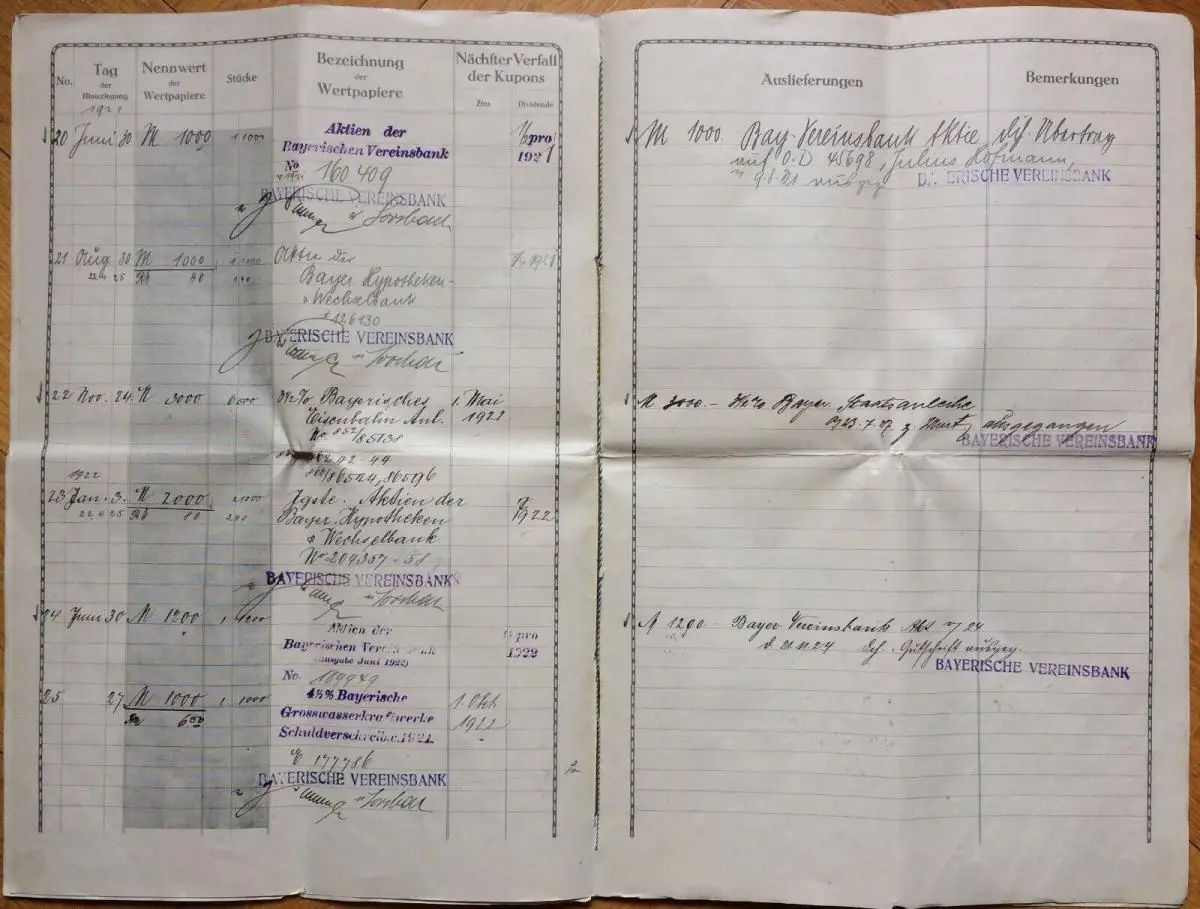 No.
Tag
der
Hinterlegung
Nennwert
der
Wertpapiere
Stücke
Bezeichnung
der
Wertpapiere
Nächster Verfall
der Kupons
Zins
Dividende
1921
20 Juni 30 M 1000 1/1000
Aktien der
Bayerischen Vereinsbank
No
160409
pro
1921
BAYERISCHE VEREINSBANK
21 Aug 30 M 1000 1/1000
Aktie der
1921
22.4.25 RM 40
Bayer Hypotheken-
Wechselbank
126130
BAYERISCHE VEREINSBANK
22 Nov. 24. M 3000
Bayerisches
1. Mai
Eisenbahn Anl.
1922
1922
23 Jan. 3. M 2000 2/1000
Aktien der
22.4.25 RM 80
Bayer. Hypotheken
1922
Wechselbank
No 204357-58
BAYERISCHE VEREINSBANK
24 Juni 30 M 1200 1/1200
Aktien der
Bayerischen Vereinsbank
pro
1922
(Ausgabe Juni 1922)
No. 189949
25 27 M 1000 1/1000
4½% Bayerische
1. Okt
Grosswasserkraftwerke
1922
Schuldverschreib. v. 1921
177786
BAYERISCHE VEREINSBANK
Auslieferungen
Bemerkungen
M 1000. Bay. Vereinsbank Aktie dch. Übertrag
auf O.D 45698, Julius Hofmann,
9.8.21
BAYERISCHE VEREINSBANK
M 3000.- Bayer. Staatsanleihe
ausgegangen
BAYERISCHE VEREINSBANK
M 1200 - Bayer. Vereinsbank Akt
21.11.24 dch. Gutschrift
BAYERISCHE VEREINSBANK